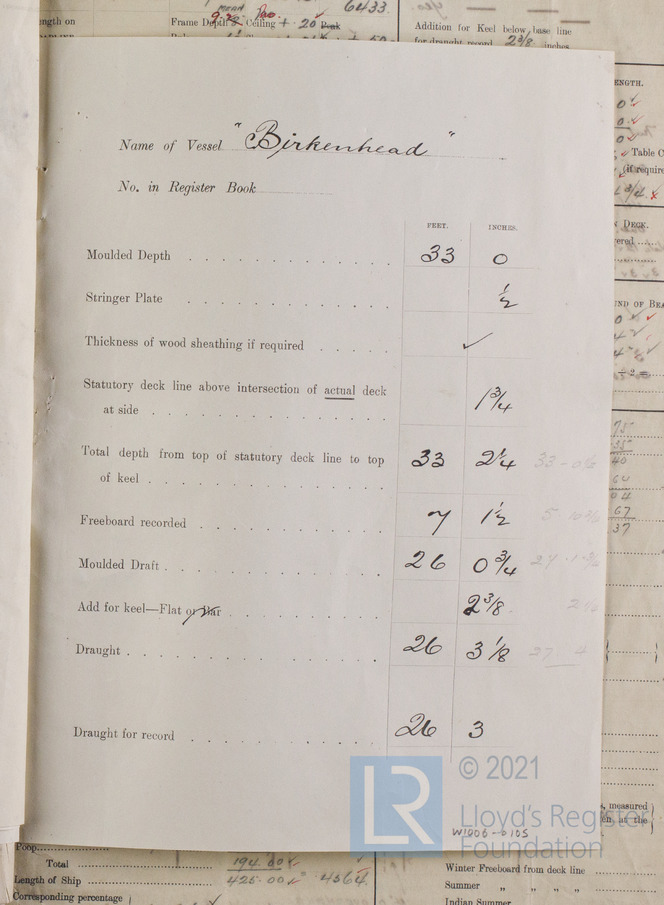 6433.
MEAN
Frame Depth Ceiling + 20
Addition for Keel below base line
for draught record 2 3/8 inches
Name of Vessel "Birkenhead"
No. in Register Book
FEET. INCHES.
Moulded Depth 33 0
Stringer Plate ½
Thickness of wood sheathing if required ✓
Statutory deck line above intersection of actual deck
at side 1 3/4
Total depth from top of statutory deck line to top
of keel 33 2 1/4
Freeboard recorded 7 1 ½
Moulded Draft 26 0 3/4
Add for keel—Flat or Bar 2 3/8
Draught 26 3 1/8
Draught for record 26 3
LR © 2021
Lloyd's Register
Foundation
W1006-0105
ENGTH.
Table C
DECK.
, measured
Poop
Total 194.00
Length of Ship 425.00 4364
Corresponding percentage
Winter Freeboard from deck line
Summer " " " "
Indian Summer